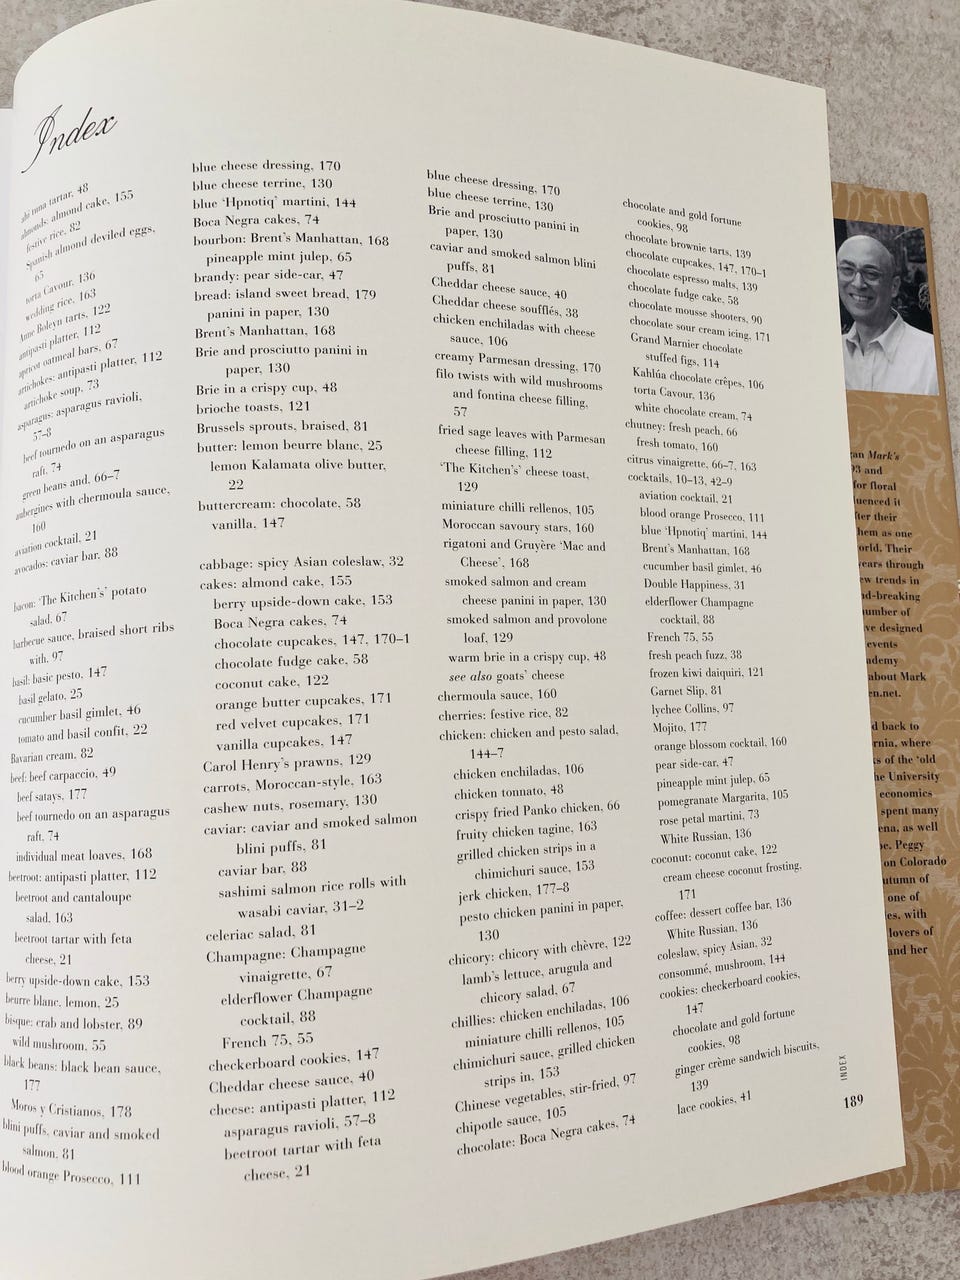 Index
ahi tuna tartar, 48
almonds: almond cake, 155
festive rice, 82
Spanish almond deviled eggs,
65
torta Cavour, 136
wedding rice, 163
Anne Boleyn tarts, 122
antipasti platter, 112
apricot oatmeal bars, 67
artichokes: antipasti platter, 112
artichoke soup, 73
asparagus: asparagus ravioli,
57–8
beef tournedo on an asparagus
raft, 74
green beans and, 66–7
aubergines with chermoula sauce,
160
aviation cocktail, 21
avocados: caviar bar, 88
bacon: 'The Kitchen's' potato
salad, 67
barbecue sauce, braised short ribs
with, 97
basil: basic pesto, 147
basil gelato, 25
cucumber basil gimlet, 46
tomato and basil confit, 22
Bavarian cream, 82
beef: beef carpaccio, 49
beef satays, 177
beef tournedo on an asparagus
raft, 74
individual meat loaves, 168
beetroot: antipasti platter, 112
beetroot and cantaloupe
salad, 163
beetroot tartar with feta
cheese, 21
berry upside-down cake, 153
beurre blanc, lemon, 25
bisque: crab and lobster, 89
wild mushroom, 55
black beans: black bean sauce,
177
Moros y Cristianos, 178
blini puffs, caviar and smoked
salmon, 81
blood orange Prosecco, 111
blue cheese dressing, 170
blue cheese terrine, 130
blue 'Hpnotiq' martini, 144
Boca Negra cakes, 74
bourbon: Brent's Manhattan, 168
pineapple mint julep, 65
brandy: pear side-car, 47
bread: island sweet bread, 179
panini in paper, 130
Brent's Manhattan, 168
Brie and prosciutto panini in
paper, 130
Brie in a crispy cup, 48
brioche toasts, 121
Brussels sprouts, braised, 81
butter: lemon beurre blanc, 25
lemon Kalamata olive butter,
22
buttercream: chocolate, 58
vanilla, 147
cabbage: spicy Asian coleslaw, 32
cakes: almond cake, 155
berry upside-down cake, 153
Boca Negra cakes, 74
chocolate cupcakes, 147, 170–1
chocolate fudge cake, 58
coconut cake, 122
orange butter cupcakes, 171
red velvet cupcakes, 171
vanilla cupcakes, 147
Carol Henry's prawns, 129
carrots, Moroccan-style, 163
cashew nuts, rosemary, 130
caviar: caviar and smoked salmon
blini puffs, 81
caviar bar, 88
sashimi salmon rice rolls with
wasabi caviar, 31–2
celeriac salad, 81
Champagne: Champagne
vinaigrette, 67
elderflower Champagne
cocktail, 88
French 75, 55
checkerboard cookies, 147
Cheddar cheese sauce, 40
cheese: antipasti platter, 112
asparagus ravioli, 57–8
beetroot tartar with feta
cheese, 21
blue cheese dressing, 170
blue cheese terrine, 130
Brie and prosciutto panini in
paper, 130
caviar and smoked salmon blini
puffs, 81
Cheddar cheese sauce, 40
Cheddar cheese soufflés, 38
chicken enchiladas with cheese
sauce, 106
creamy Parmesan dressing, 170
filo twists with wild mushrooms
and fontina cheese filling,
57
fried sage leaves with Parmesan
cheese filling, 112
'The Kitchen's' cheese toast,
129
miniature chilli rellenos, 105
Moroccan savoury stars, 160
rigatoni and Gruyère 'Mac and
Cheese', 168
smoked salmon and cream
cheese panini in paper, 130
smoked salmon and provolone
loaf, 129
warm brie in a crispy cup, 48
see also goats' cheese
chermoula sauce, 160
cherries: festive rice, 82
chicken: chicken and pesto salad,
144–7
chicken enchiladas, 106
chicken tonnato, 48
crispy fried Panko chicken, 66
fruity chicken tagine, 163
grilled chicken strips in a
chimichuri sauce, 153
jerk chicken, 177–8
pesto chicken panini in paper,
130
chicory: chicory with chèvre, 122
lamb's lettuce, arugula and
chicory salad, 67
chillies: chicken enchiladas, 106
miniature chilli rellenos, 105
chimichuri sauce, grilled chicken
strips in, 153
Chinese vegetables, stir-fried, 97
chipotle sauce, 105
chocolate: Boca Negra cakes, 74
chocolate and gold fortune
cookies, 98
chocolate brownie tarts, 139
chocolate cupcakes, 147, 170–1
chocolate espresso malts, 139
chocolate fudge cake, 58
chocolate mousse shooters, 90
chocolate sour cream icing, 171
Grand Marnier chocolate
stuffed figs, 114
Kahlúa chocolate crêpes, 106
torta Cavour, 136
white chocolate cream, 74
chutney: fresh peach, 66
fresh tomato, 160
citrus vinaigrette, 66–7, 163
cocktails, 10–13, 42–9
aviation cocktail, 21
blood orange Prosecco, 111
blue 'Hpnotiq' martini, 144
Brent's Manhattan, 168
cucumber basil gimlet, 46
Double Happiness, 31
elderflower Champagne
cocktail, 88
French 75, 55
fresh peach fuzz, 38
frozen kiwi daiquiri, 121
Garnet Slip, 81
lychee Collins, 97
Mojito, 177
orange blossom cocktail, 160
pear side-car, 47
pineapple mint julep, 65
pomegranate Margarita, 105
rose petal martini, 73
White Russian, 136
coconut: coconut cake, 122
cream cheese coconut frosting,
171
coffee: dessert coffee bar, 136
White Russian, 136
coleslaw, spicy Asian, 32
consommé, mushroom, 144
cookies: checkerboard cookies,
147
chocolate and gold fortune
cookies, 98
ginger crème sandwich biscuits,
139
lace cookies, 41
INDEX
189
Mark's
and
for floral
it
their
as one
Their
through
trends in
designed
events
about Mark
back to
where
of the 'old
University
economics
spent many
as well
Peggy
on Colorado
of
one of
with
lovers of
and her